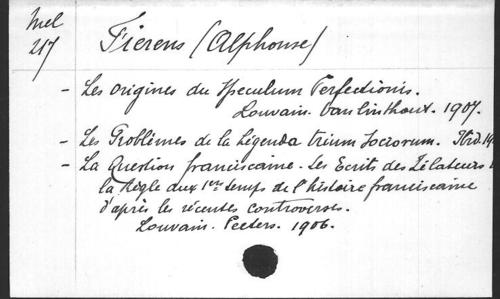 Mel
217
Fierens (Alphonse)
- Les origines du Speculum Perfectionis.
Louvain. Van linthout. 1907.
- Les Problèmes de la Légenda trium Sociorum. Ibid. 19
- La Question franciscaine. Les Ecrits des Zélateurs
la Règle aux 1ers temps de l'histoire franciscaine
d'après les récentes controverses.
Louvain. Peeters. 1906.